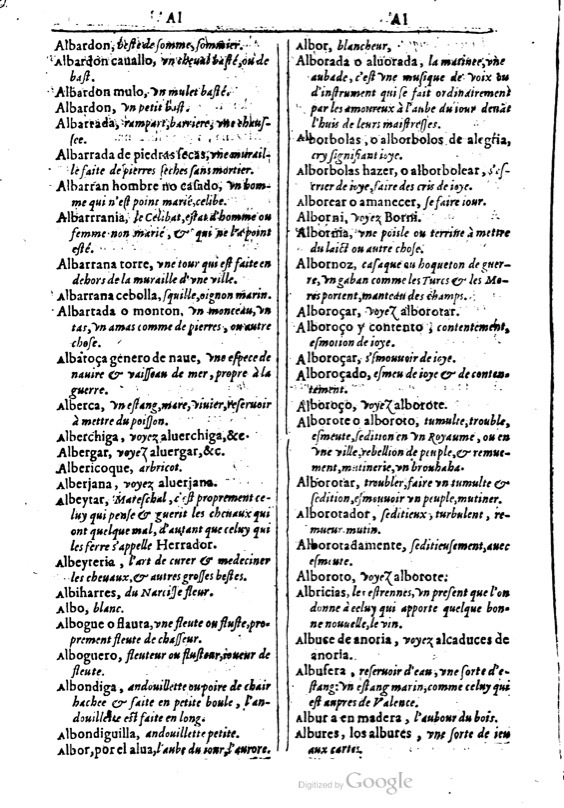 AI
AI
Albardon, beste de somme, sommier.
Albardon cauallo, vn cheual basté, ou de
bast.
Albardon mulo, vn mulet basté.
Albardon, vn petit bast.
Albarrada, rampart, barriere, vne chaus-
see.
Albarrada de piedras secas, vne murail-
le faite de pierres seches sans mortier.
Albarran hombre no casado, vn hom-
me qui n'est point marié, celibe.
Albarrania, le Celibat, estat d'homme ou
femme non marié, & qui ne l'a point
esté.
Albarrana torre, vne tour qui est faite en
dehors de la muraille d'vne ville.
Albarrana cebolla, squille, oignon marin.
Albartada o monton, vn monceau, vn
tas, vn amas comme de pierres, ou autre
chose.
Albatoça género de naue, vne espece de
nauire & vaisseau de mer, propre à la
guerre.
Alberca, vn estang, mare, viuier, reseruoir
à mettre du poisson.
Alberchiga, voyez aluerchiga, &c.
Albergar, voyez aluergar, &c.
Albericoque, arbricot.
Alberjana, voyez aluerjana.
Albeytar, Mareschal, c'est proprement ce-
luy qui pense & guerit les cheuaux qui
ont quelque mal, d'autant que celuy qui
les ferre s'appelle Herrador.
Albeyteria, l'art de curer & medeciner
les cheuaux, & autres grosses bestes.
Albiharres, du Narcisse fleur.
Albo, blanc.
Albogue o flauta, vne fleute ou fluste, pro-
prement fleute de chasseur.
Alboguero, fleuteur ou flusteur, ioueur de
fleute.
Albondiga, andouillette ou poire de chair
hachee & faite en petite boule, l'an-
douillette est faite en long.
Albondiguilla, andouillette petite.
Albor, por el alua, l'aube du iour, l'aurore.
Albor, blancheur.
Alborada o aluorada, la matinee, vne
aubade, c'est vne musique de voix ou
d'instrument qui se fait ordinairement
par les amoureux à l'aube du iour denāt
l'huis de leurs maistresses.
Alborbolas, o alborbolos de alegria,
cry signifiant ioye.
Alborbolas hazer, o alborbolear, s'es-
crier de ioye, faire des cris de ioye.
Alborear o amanecer, se faire iour.
Alborni, voyez Borni.
Albornia, vne poisle ou terrine à mettre
du laict ou autre chose.
Albornoz, casaque ou hoqueton de guer-
re, vn gaban comme les Turcs & les Mo-
res portent, manteau des champs.
Alboroçar, voyez alborotar.
Alboroço y contento, contentement,
esmotion de ioye.
Alboroçar, s'esmouuoir de ioye.
Alboroçado, esmeu de ioye & de conten-
tement.
Alboroço, voyez alborote.
Alborote o alboroto, tumulte, trouble,
esmeute, sedition en vn Royaume, ou en
vne ville, rebellion de peuple, & remue-
ment, mutinerie, vn brouhaha.
Alborotar, troubler, faire vn tumulte &
sedition, esmouuoir vn peuple, mutiner.
Alborotador, seditieux, turbulent, re-
mueur mutin.
Alborotadamente, seditieusement, auec
esmeute.
Alboroto, voyez alborote.
Albricias, les estrennes, vn present que l'on
donne à celuy qui apporte quelque bon-
ne nouuelle, le vin.
Albuse de anoria, voyez alcaduces de
anoria.
Albufera, reseruoir d'eau, vne sorte d'e-
stang: vn estang marin, comme celuy qui
est aupres de Valence.
Albura en madera, l'aubour du bois.
Albures, los albures, vne sorte de ieu
aux cartes.
Digitized by Google